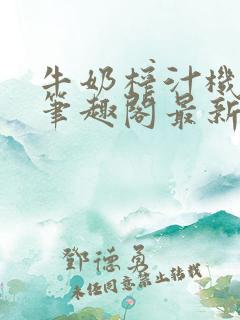 牛奶榨汁機
筆趣閣最新
鄧德勇
未经同意禁止转载